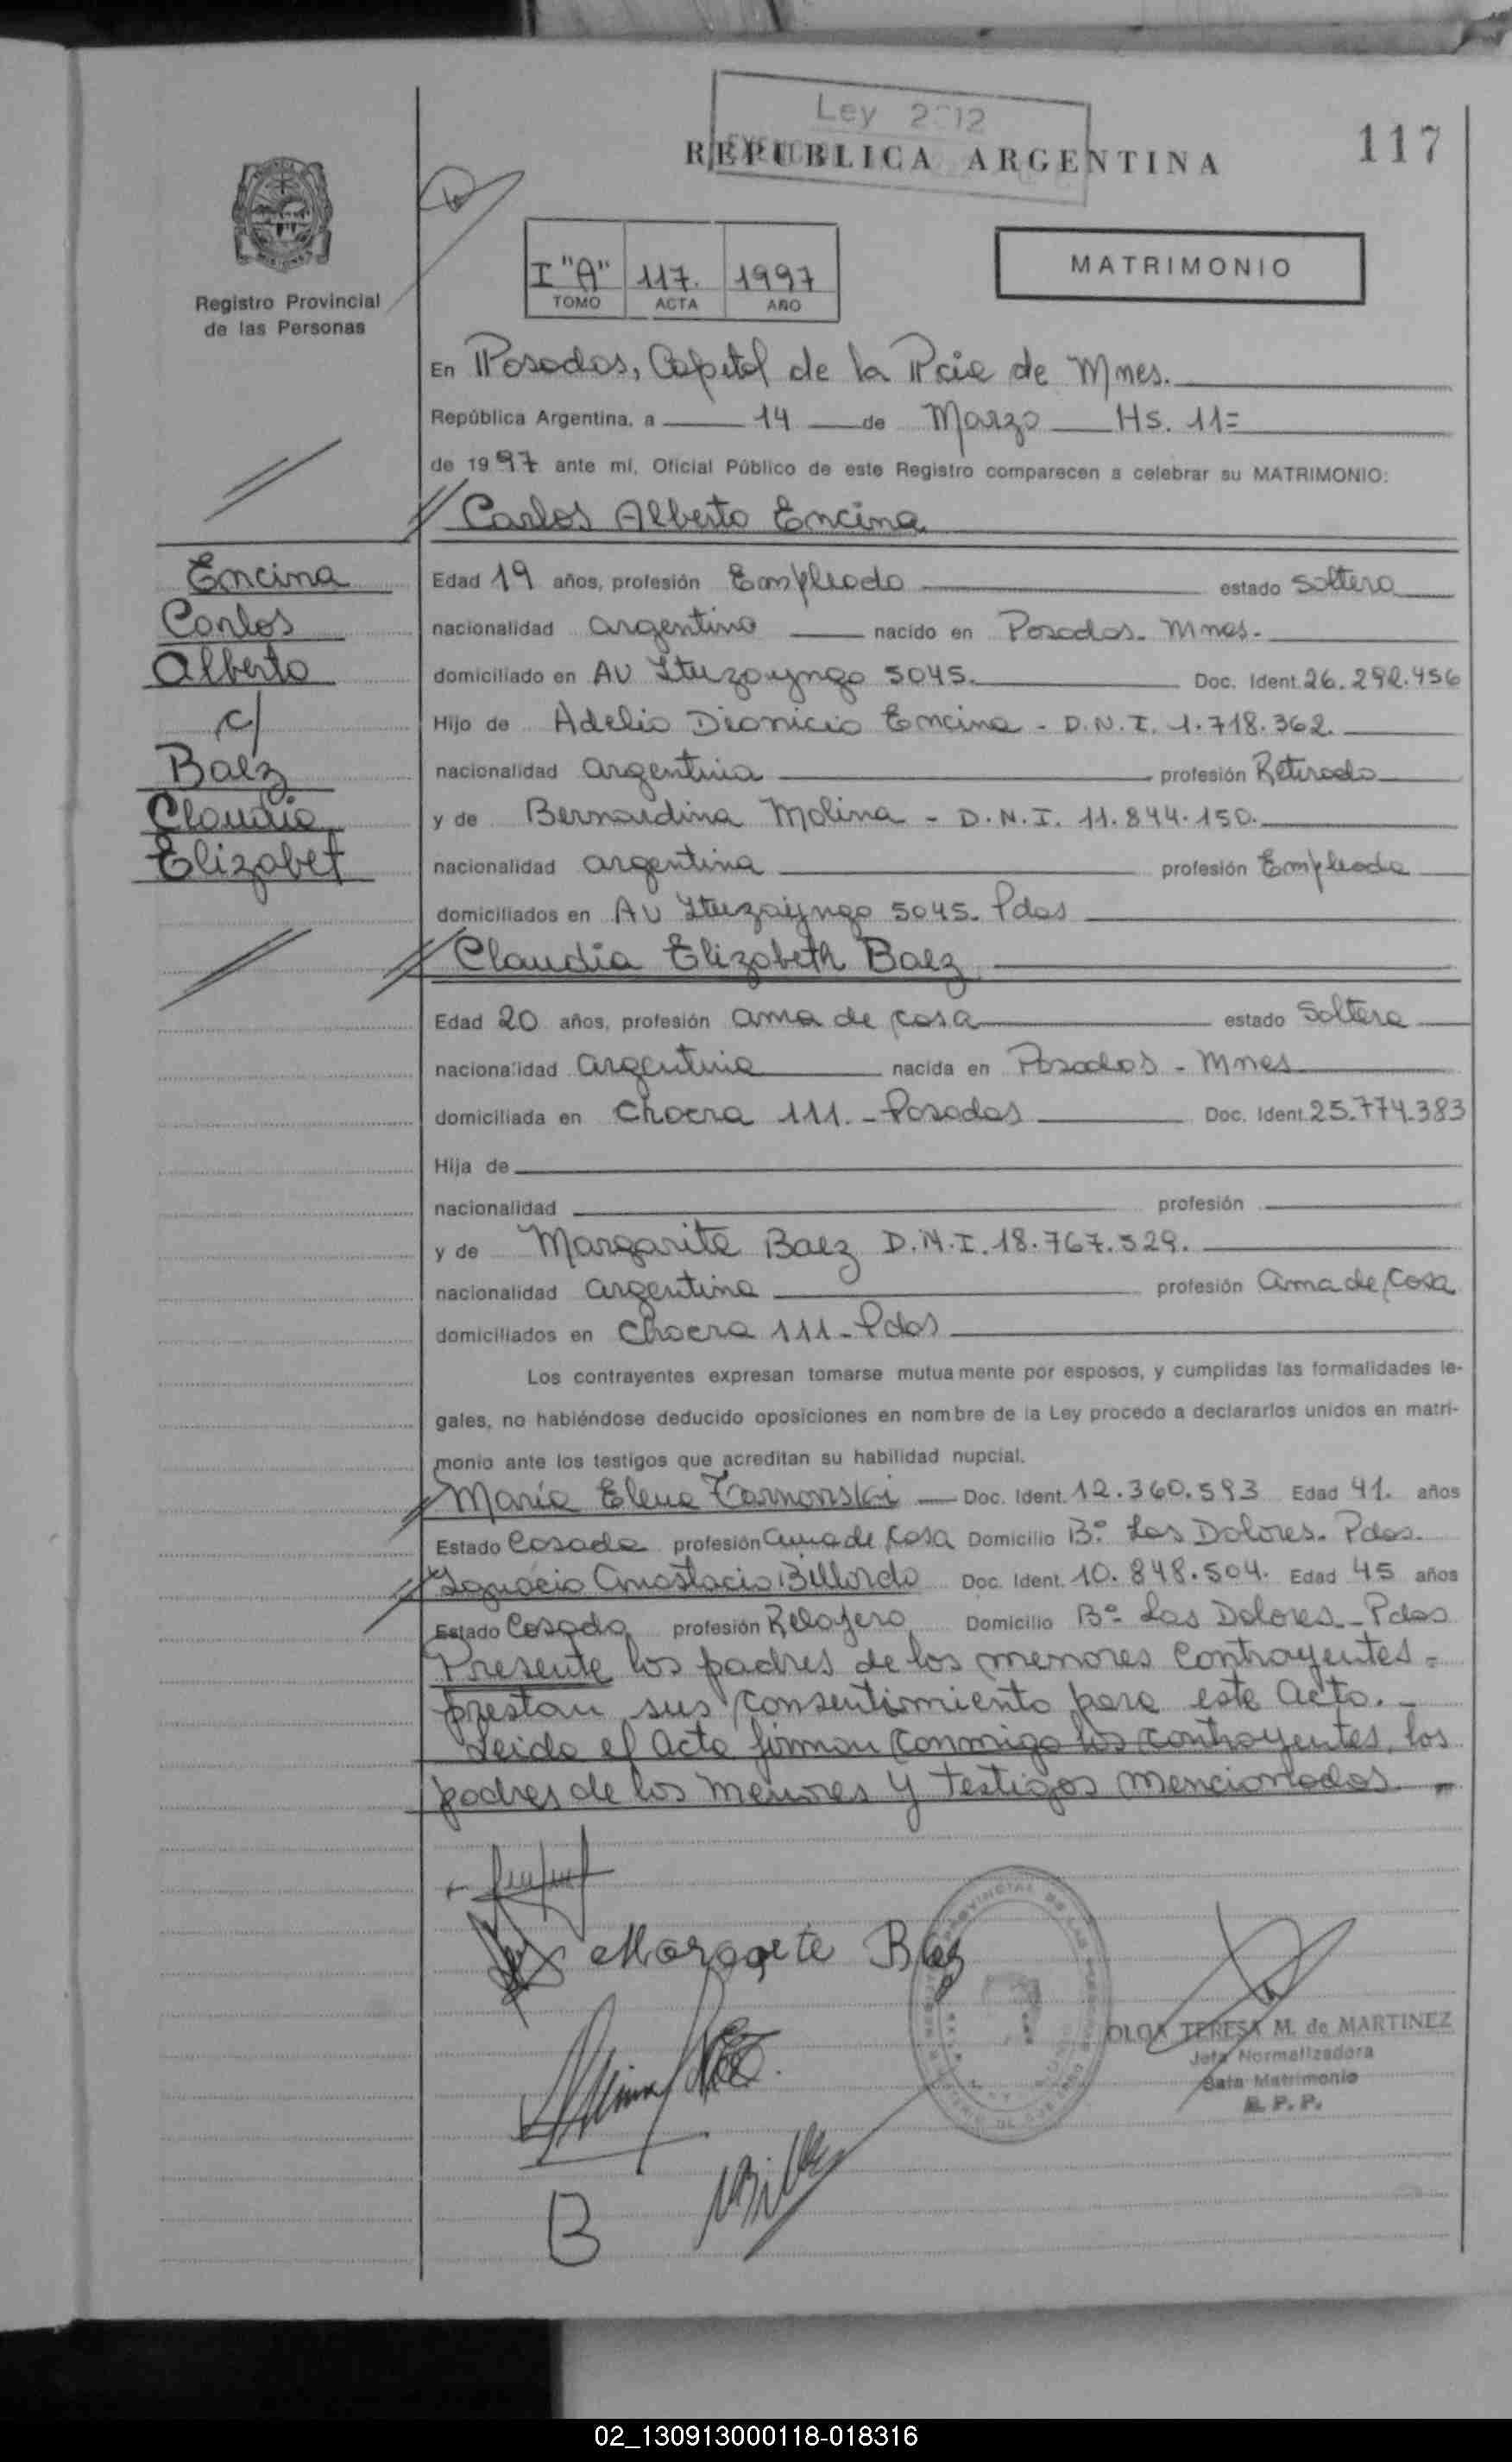 Ley 2712
REPUBLICA ARGENTINA
117
Registro Provincial
de las Personas
I "A" 117. 1997
TOMO ACTA AÑO
MATRIMONIO
En Posadas, Capital de la Pcia de Mnes.
República Argentina, a 14 de Marzo Hs. 11=
de 1997 ante mí, Oficial Público de este Registro comparecen a celebrar su MATRIMONIO:
Carlos Alberto Encina
Encina
Carlos
Alberto
c/
Baez
Claudia
Elizabet
Edad 19 años, profesión Empleado estado Soltero
nacionalidad argentino nacido en Posadas. Mnes.
domiciliado en AV Ituzayngo 5045. Doc. Ident. 26.292.456
Hijo de Adelio Dionicio Encina - D.N.I. 1.718.362.
nacionalidad argentina profesión Retirado
y de Bernardina Molina - D.N.I. 11.844.150.
nacionalidad argentina profesión Empleada
domiciliados en AV Ituzayngo 5045. Pdas
Claudia Elizabeth Baez
Edad 20 años, profesión ama de casa estado Soltera
nacionalidad argentina nacida en Posadas - Mnes
domiciliada en Chacra 111. - Posadas Doc. Ident. 25.774.383
Hija de
nacionalidad profesión
y de Margarita Baez D.N.I. 18.767.529.
nacionalidad argentina profesión ama de casa
domiciliados en Chacra 111 - Pdas
Los contrayentes expresan tomarse mutuamente por esposos, y cumplidas las formalidades le-
gales, no habiéndose deducido oposiciones en nombre de la Ley procedo a declararlos unidos en matri-
monio ante los testigos que acreditan su habilidad nupcial.
María Elena Tarnowski Doc. Ident. 12.360.593 Edad 41. años
Estado Casada profesión ama de casa Domicilio B° Los Dolores. Pdas.
Ignacio Anastacio Billordo Doc. Ident. 10.848.504. Edad 45 años
Estado Casado profesión Relojero Domicilio B° Las Dolores - Pdas
Presente los padres de los menores contrayentes =
prestan sus consentimiento para este acto. -
Leida el acta firman conmigo los contrayentes, los
padres de los menores y testigos mencionados. -
Margarita Baez
OLGA TERESA M. de MARTINEZ
Jefa Normalizadora
Sala Matrimonio
R. P. P.
B
02_130913000118-018316